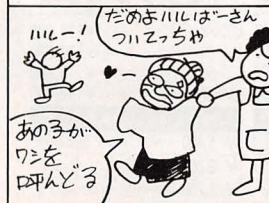 だめよハルばーさん
ついてっちゃ
ハルー!
あの子が
ワシを
呼んどる